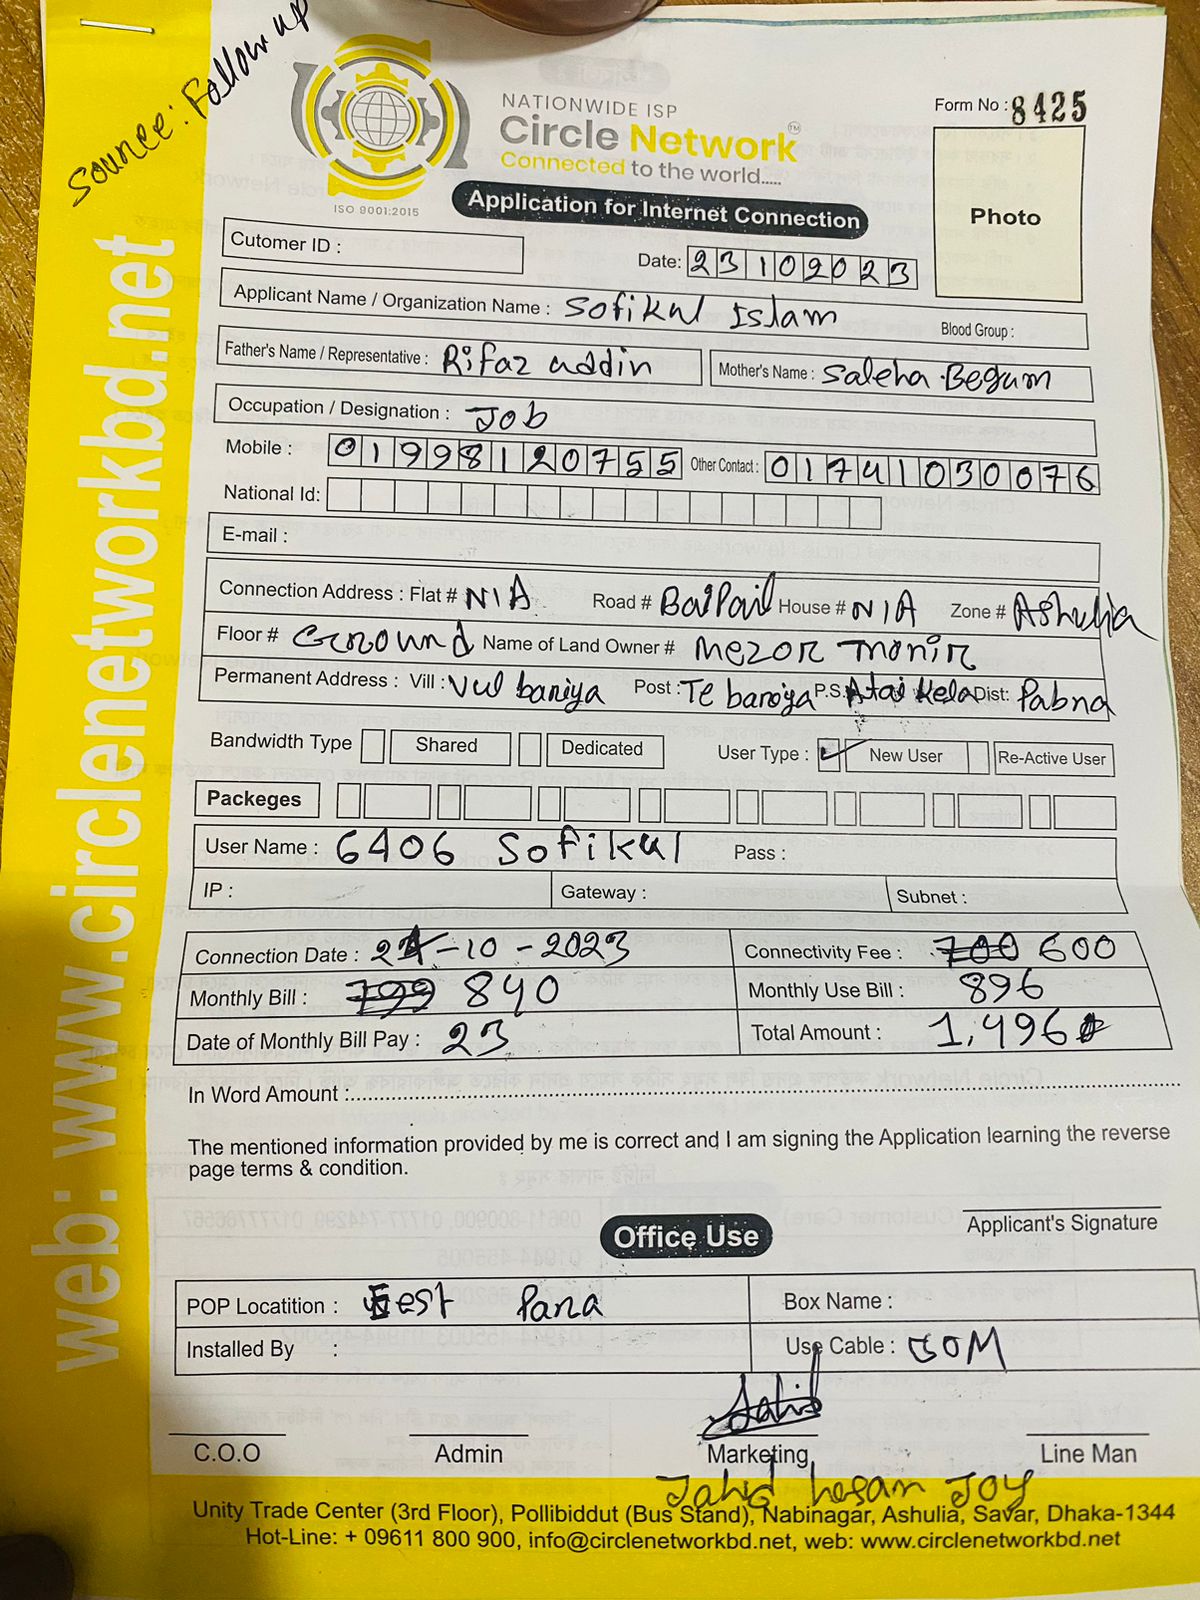 Source: Follow up
NATIONWIDE ISP
Circle Network™
Connected to the world.....
ISO 9001:2015
Form No : 8425
Application for Internet Connection
Photo
Cutomer ID :
Date: 23102023
Applicant Name / Organization Name : Sofikul Islam Blood Group :
Father's Name / Representative : Rifaz uddin Mother's Name : Saleha Begum
Occupation / Designation : Job
Mobile : 01998120755 Other Contact : 01741030076
National Id:
E-mail :
Connection Address : Flat # N/A Road # Baipail House # N/A Zone # Ashulia
Floor # Ground Name of Land Owner # Mezor Monir
Permanent Address : Vill : Vul baniya Post : Te baniya P.S. Atai Kela Dist: Pabna
Bandwidth Type Shared Dedicated User Type : ✓ New User Re-Active User
Packeges
User Name : 6406 Sofikul Pass :
IP : Gateway : Subnet :
Connection Date : 24-10-2023 Connectivity Fee : 700 600
Monthly Bill : 799 840 Monthly Use Bill : 896
Date of Monthly Bill Pay : 23 Total Amount : 1,496
In Word Amount :
The mentioned information provided by me is correct and I am signing the Application learning the reverse
page terms & condition.
Applicant's Signature
Office Use
POP Locatition : West Para Box Name :
Installed By : Use Cable : 30M
Jahid
C.O.O Admin Marketing Line Man
Jahid hasan Joy
Unity Trade Center (3rd Floor), Pollibiddut (Bus Stand), Nabinagar, Ashulia, Savar, Dhaka-1344
Hot-Line: + 09611 800 900, info@circlenetworkbd.net, web: www.circlenetworkbd.net
web: www.circlenetworkbd.net